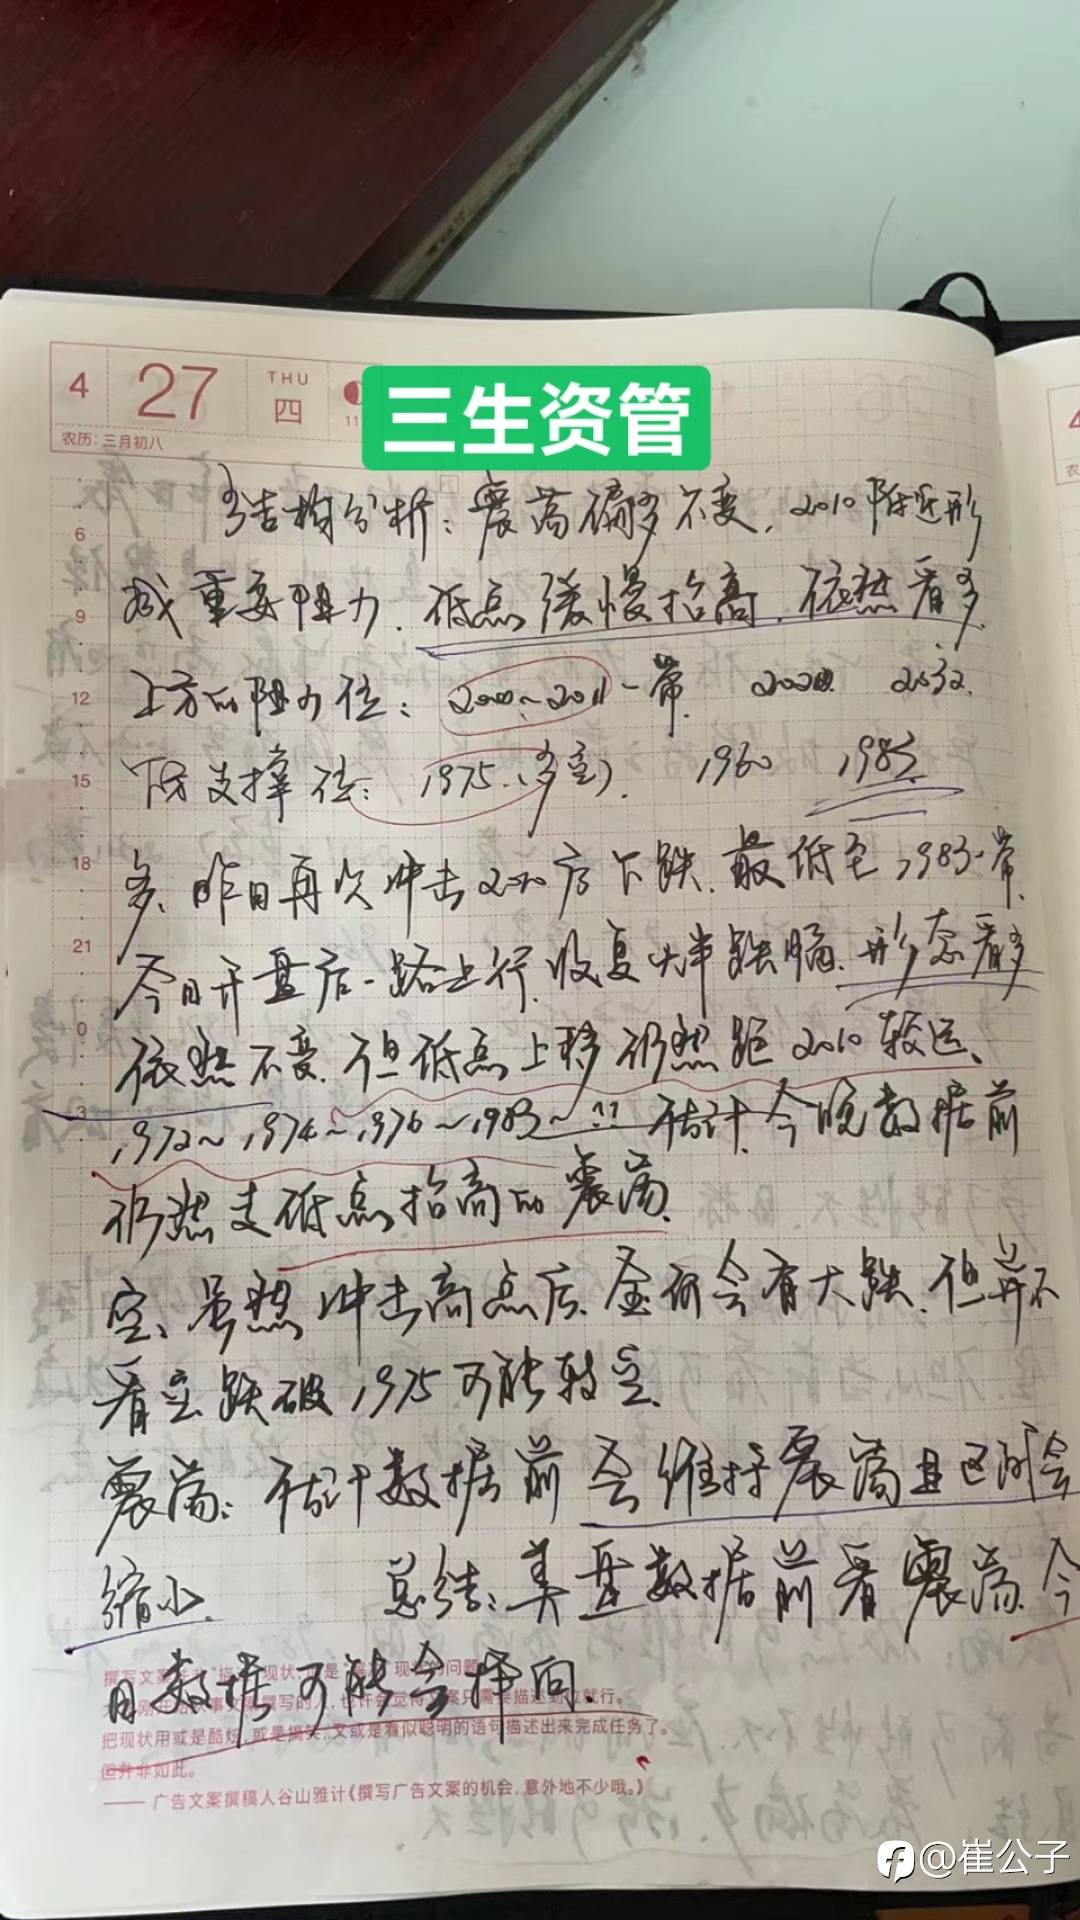 4 27 THU 四 11
农历：三月初八
三生资管
结构分析：震荡偏多不变，2010附近形
6
成重要阻力，低点缓慢抬高，依然看多
9
上方的阻力位：2000~2011一带 2020 2032
12
下方支撑位：1975（多空） 1960 1983
15
多、昨日再次冲击2010后下跌，最低至1983一带，
18
今日开盘后一路上行，收复大半跌幅，形态看多
21
依然不变，但低点上移仍然距2010较远、
0
1972~1974~1976~1983~?? 估计今晚数据前
3
仍然走低点抬高的震荡。
空、虽然冲击高点后，金价会有大跌，但并不
看空，跌破1975可能转空。
震荡：估计数据前会维持震荡且区间会
缩小。 总结：美盘数据前看震荡，今
日数据可能会择向。
撰写文案 现状 现状的问题
把现状用或是酷炫，或是搞笑，又或是看似聪明的语句描述出来完成任务了。
但并非如此。
—— 广告文案撰稿人谷山雅计《撰写广告文案的机会，意外地不少哦。》
@崔公子